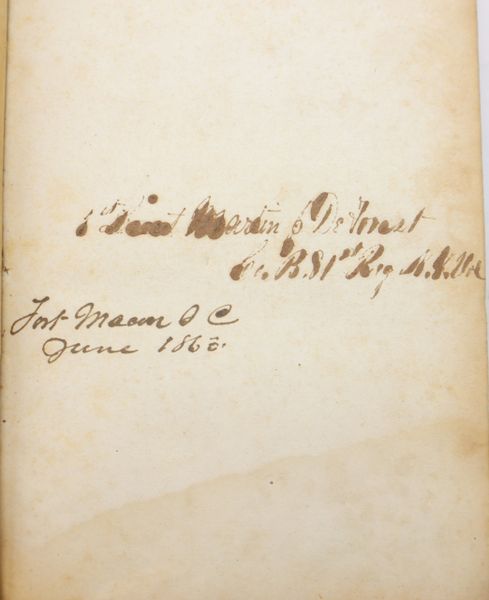 1st Lieut Martin J DeForest
Co. B. 81st Reg N.Y. Vol
Fort Macon S C
June 1863.